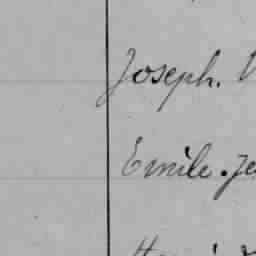 Joseph. V
Emile. Je